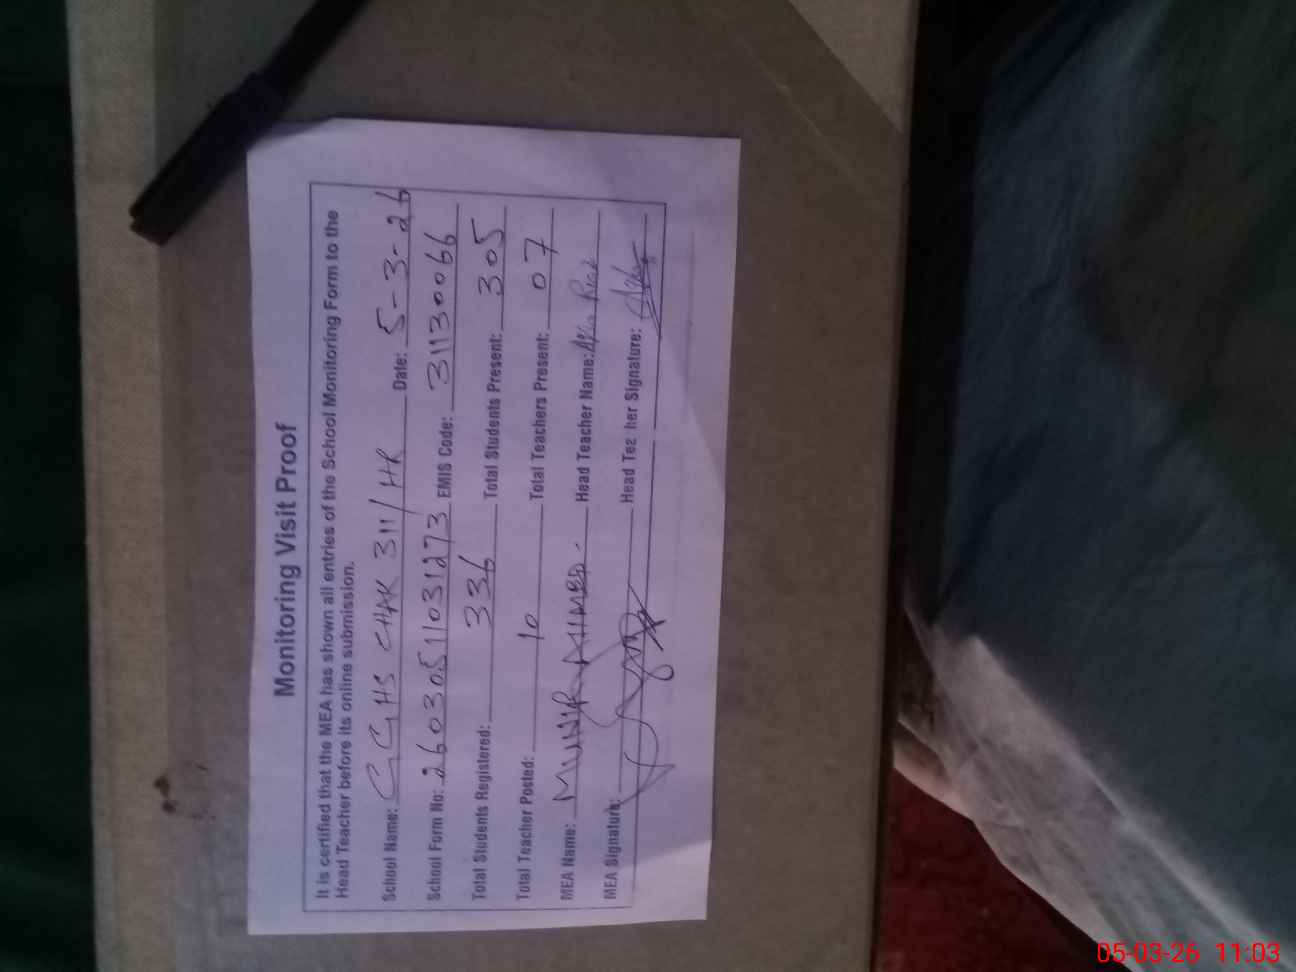 Monitoring Visit Proof
It is certified that the MEA has shown all entries of the School Monitoring Form to the
Head Teacher before its online submission.
School Name: GGHS CHAK 311/HR Date: 5-3-26
School Form No: 26030511031273 EMIS Code: 31130066
Total Students Registered: 336 Total Students Present: 305
Total Teacher Posted: 10 Total Teachers Present: 07
MEA Name: MUNIR AHMED- Head Teacher Name:
MEA Signature: Head Tea her Signature:
05-03-26 11:03